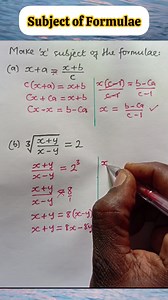 Subject of Formulae
Make 'x' subject of the formulae:
(a) x+a = x+b/c
c(x+a) = x+b
Cx+Ca = x+b
Cx-x = b-Ca
x(c-1)/c-1 = b-Ca/c-1
x = b-Ca/c-1 ✓
(b) ³√x+y/x-y = 2
x+y/x-y = 2³
x+y/x-y = 8/1
x+y = 8(x-y)
x+y = 8x-8y
x